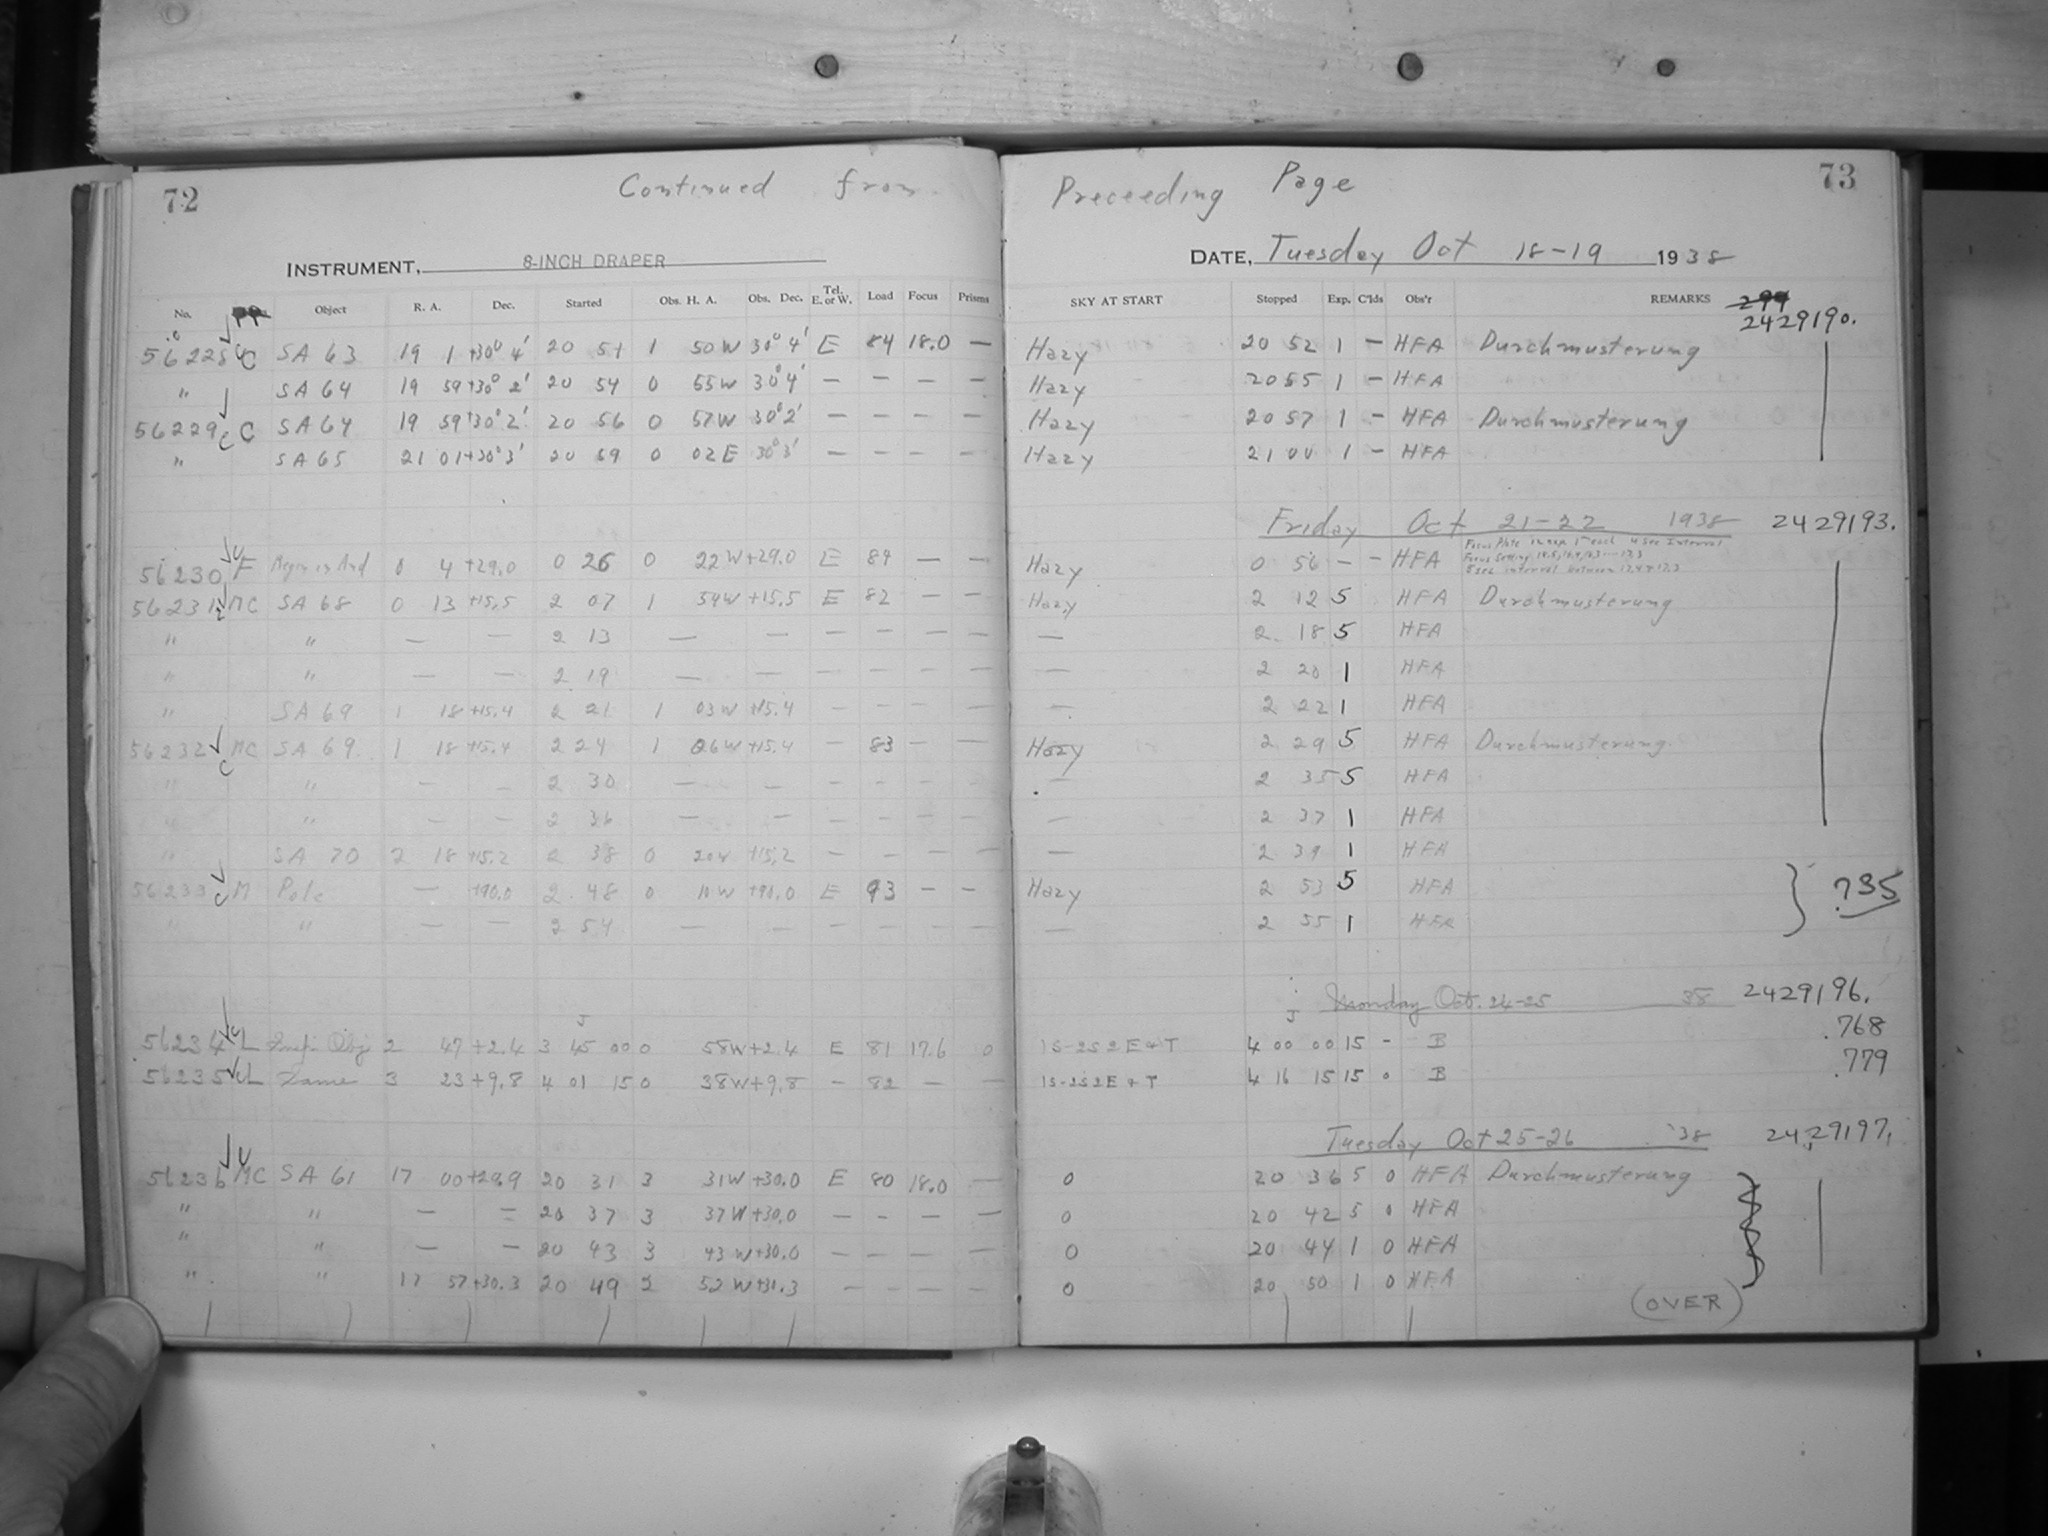 72 Continued from Preceeding Page 73
INSTRUMENT, 8-INCH DRAPER DATE, Tuesday Oct 18-19 1938
No. Object R. A. Dec. Started Obs. H. A. Obs. Dec. Tel. E. or W. Load Focus Prisms SKY AT START Stopped Exp. C'lds Obs'r REMARKS
2429190.
56228 C SA 63 19 1 +30° 4' 20 51 1 50 W 30° 4' E 84 18.0 — Hazy 20 52 1 — HFA Durchmusterung
" SA 64 19 59 +30° 2' 20 54 0 55 W 30° 4' — — — — Hazy 20 55 1 — HFA
56229 C SA 64 19 59 +30° 2' 20 56 0 57 W 30° 2' — — — — Hazy 20 57 1 — HFA Durchmusterung
" SA 65 21 01 +30° 3' 20 59 0 02 E 30° 3' — — — — Hazy 21 00 1 — HFA
Friday Oct 21-22 1938 2429193.
56230 F 0 4 +29.0 0 26 0 22 W +29.0 E 84 — — Hazy 0 56 — — HFA Focus Plate
56231 MC SA 68 0 13 +15.5 2 07 1 54 W +15.5 E 82 — — Hazy 2 12 5 HFA Durchmusterung
" " — — 2 13 — — — — — — — 2 18 5 HFA
" " — — 2 19 — — — — — — — 2 20 1 HFA
" SA 69 1 18 +15.4 2 21 1 03 W +15.4 — — — — — 2 22 1 HFA
56232 MC SA 69 1 18 +15.4 2 24 1 06 W +15.4 — 83 — — Hazy 2 29 5 HFA Durchmusterung
" " — — 2 30 — — — — — — — 2 35 5 HFA
" " — — 2 36 — — — — — — — 2 37 1 HFA
" SA 70 2 18 +15.2 2 38 0 20 W +15.2 — — — — — 2 39 1 HFA
56233 M Pole — +90.0 2 48 0 W +90.0 E 93 — — Hazy 2 53 5 HFA .735
" " — — 2 54 — — — — — — — 2 55 1 HFA
Monday Oct. 24-25 38 2429196.
56234 L 2 47 +2.4 3 45 00 0 58 W +2.4 E 81 17.6 0 1S-2S 2E + T 4 00 00 15 - B .768
56235 L Same 3 23 +9.8 4 01 15 0 38 W +9.8 — 82 — — 1S-2S 2E + T 4 16 15 15 0 B .779
Tuesday Oct 25-26 '38 2429197.
56236 MC SA 61 17 00 +29.9 20 31 3 31 W +30.0 E 80 18.0 — 0 20 36 5 0 HFA Durchmusterung
" " — = 20 37 3 37 W +30.0 — — — — 0 20 42 5 0 HFA
" " — — 20 43 3 43 W +30.0 — — — — 0 20 44 1 0 HFA
" " 17 57 +30.3 20 49 2 52 W +31.3 — — — — 0 20 50 1 0 HFA
(OVER)